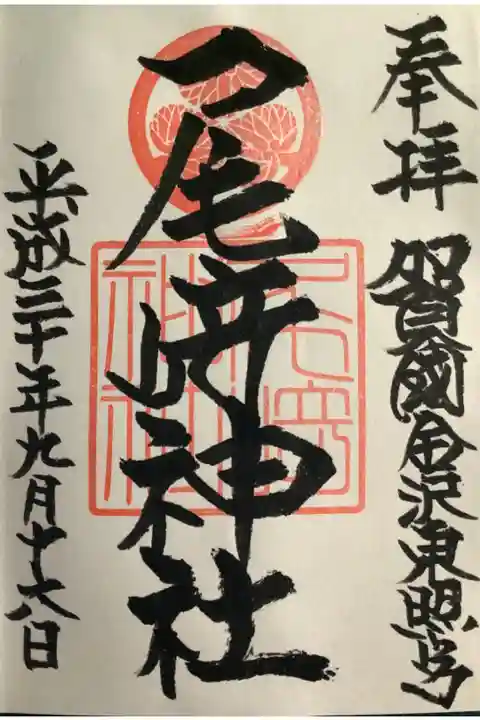 奉拝 加賀國金沢東照宮
尾﨑神社
平成三十年九月十六日
尾﨑
神社